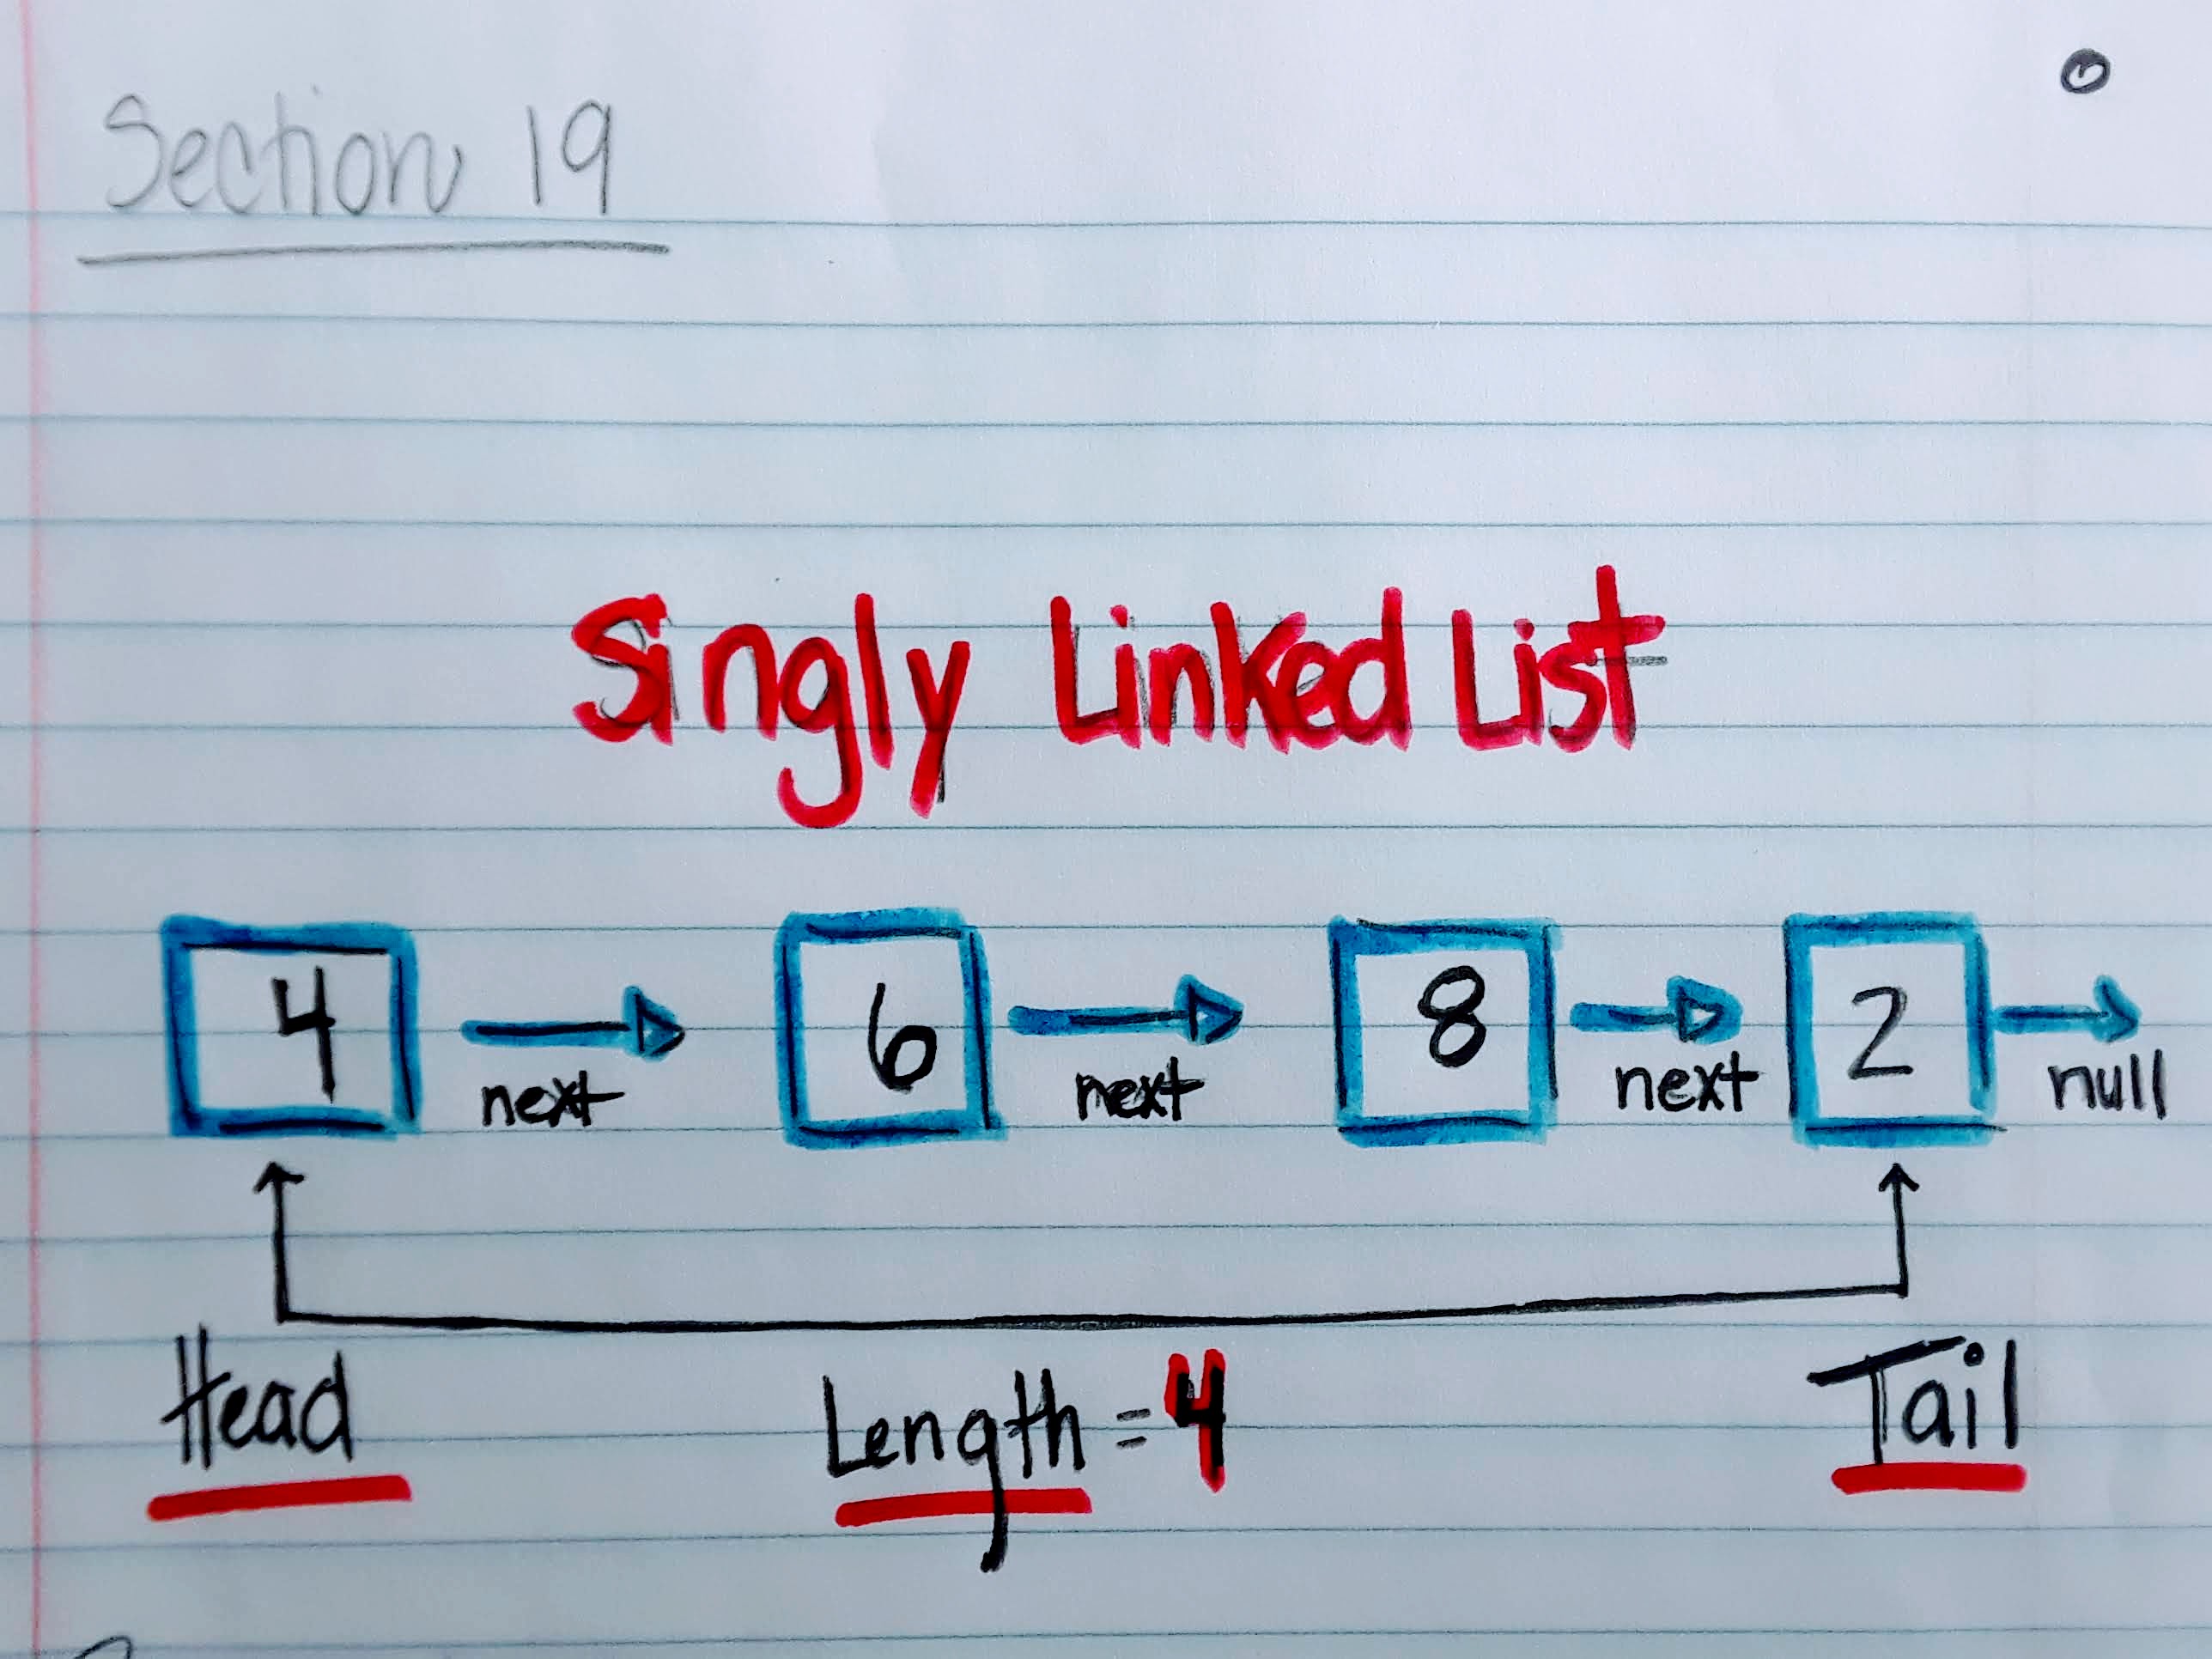 Section 19
Singly Linked List
4 6 8 2
next next next null
Head Length = 4 Tail